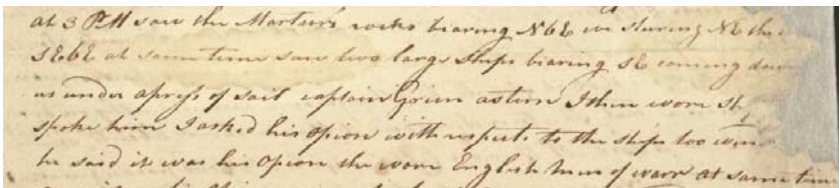 at 3 PM saw the Marturs rocks bearing NbE we sturing NE the
SEbE at same time saw two large Ships bearing SE coming down
us under a press of sail captain Green astern I then wore Sh
spoke him I asked his opion with respects to the ships too win
he said it was his opion the ware English Men of warr at same time